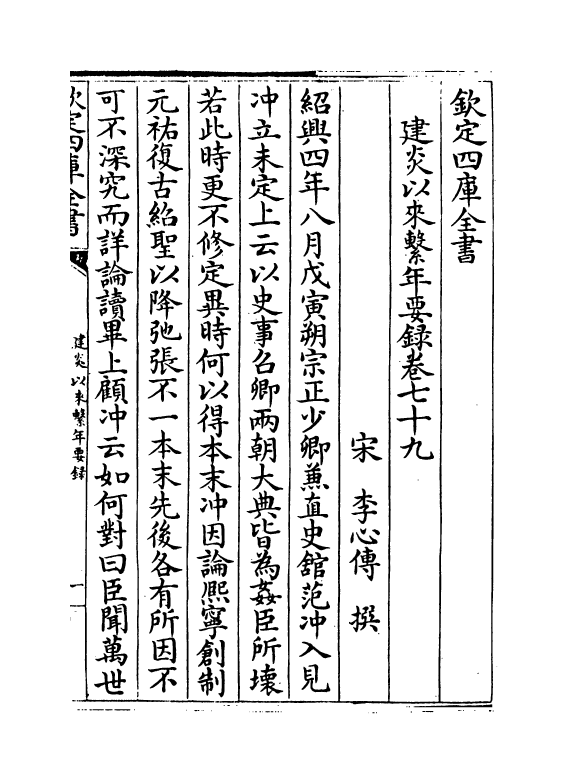 欽定四庫全書
建炎以來繫年要録卷七十九
宋 李心傳 撰
紹興四年八月戊寅朔宗正少卿兼直史舘范冲入見
冲立未定上云以史事召卿兩朝大典皆為姦臣所壊
若此時更不修定異時何以得本末冲因論熈寧創制
元祐復古紹聖以降弛張不一本末先後各有所因不
可不深究而詳論讀畢上顧冲云如何對曰臣聞萬世
欽定四庫全書
建炎以來繫年要録
一